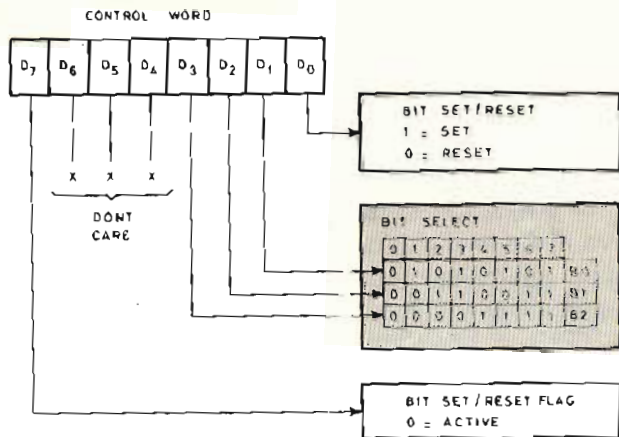 CONTROL WORD
D7 D6 D5 D4 D3 D2 D1 D0
BIT SET/RESET
1 = SET
0 = RESET
x x x
DONT
CARE
BIT SELECT
0 1 2 3 4 5 6 7
0 1 0 1 0 1 0 1 B0
0 0 1 1 0 0 1 1 B1
0 0 0 0 1 1 1 1 B2
BIT SET/RESET FLAG
0 = ACTIVE